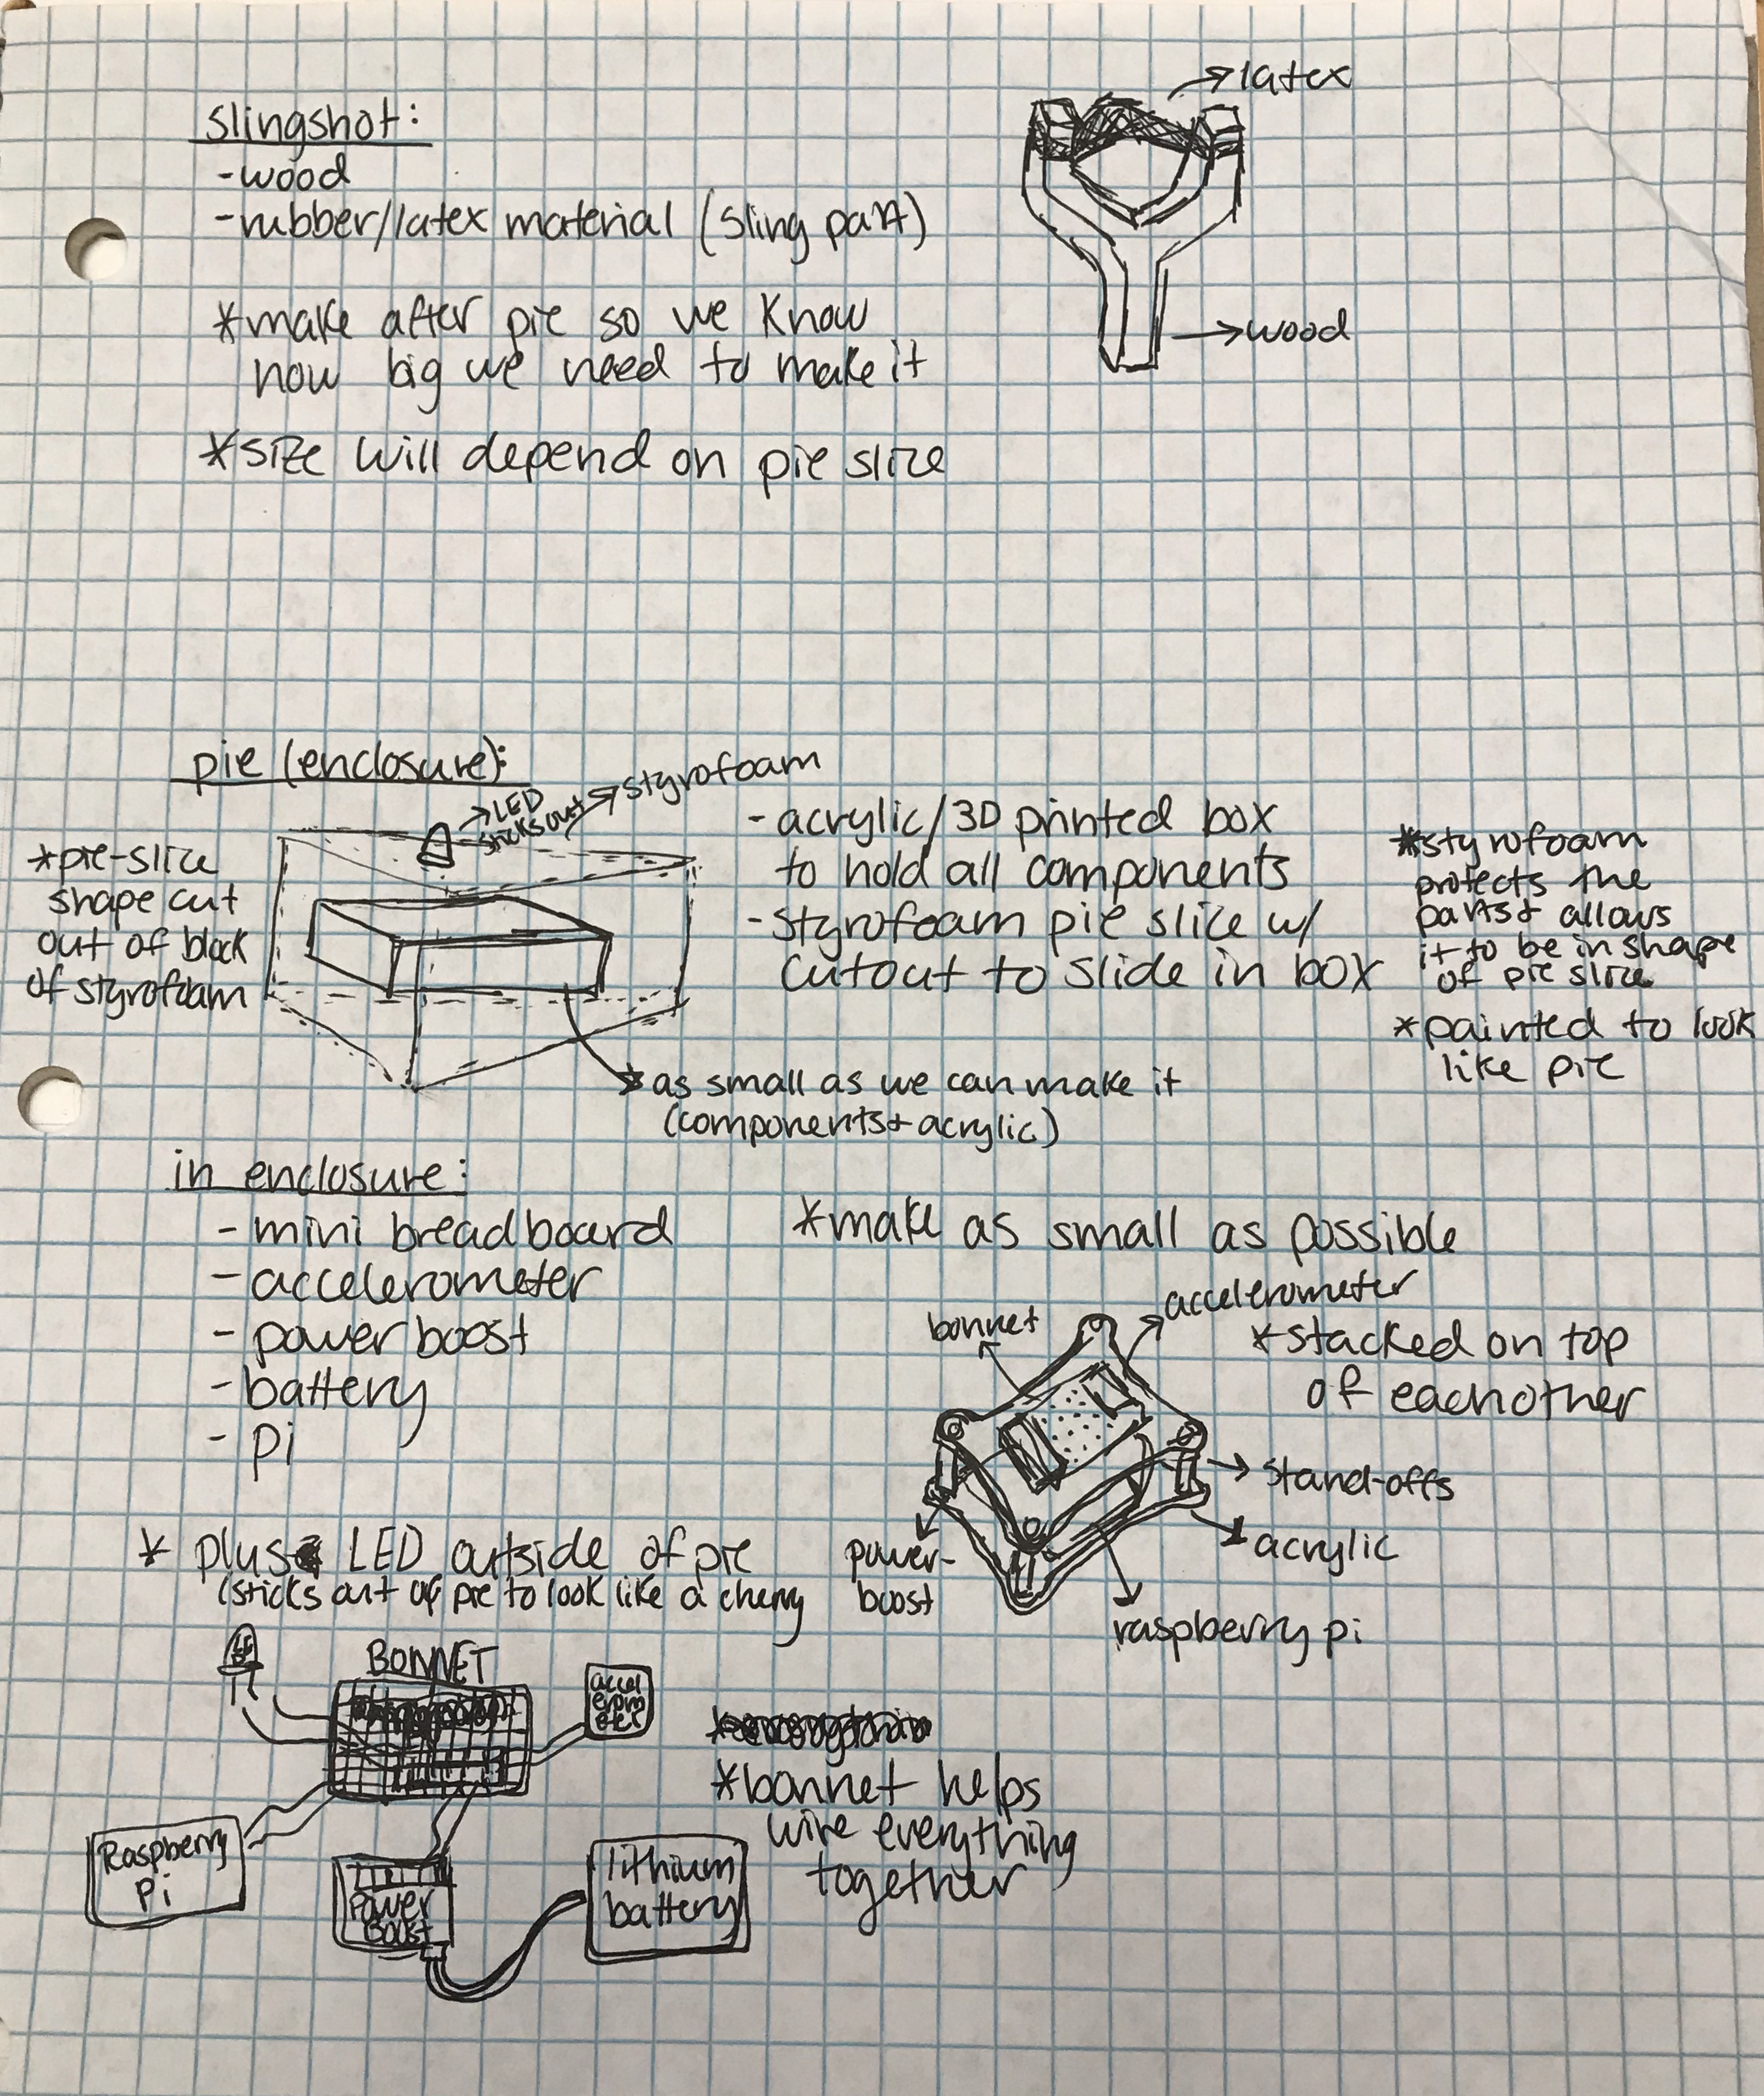 slingshot:
-wood
-rubber/latex material (sling part)
*make after pie so we know
how big we need to make it
*size will depend on pie slice
latex
wood
pie (enclosure):
LED
sticks out
styrofoam
*pie-slice
shape cut
out of block
of styrofoam
- acrylic/3D printed box
to hold all components
-styrofoam pie slice w/
cutout to slide in box
*styrofoam
protects the
parts + allows
it to be in shape
of pie slice
*painted to look
like pie
as small as we can make it
(components + acrylic)
in enclosure:
- mini breadboard
- accelerometer
- power boost
- battery
- pi
*make as small as possible
bonnet
accelerometer
*stacked on top
of eachother
stand-offs
acrylic
power-
boost
raspberry pi
* plus LED outside of pie
(sticks out of pie to look like a cherry
LED
BONNET
accel
erom
eter
Raspberry
Pi
Power
Boost
lithium
battery
*bonnet helps
wire everything
together